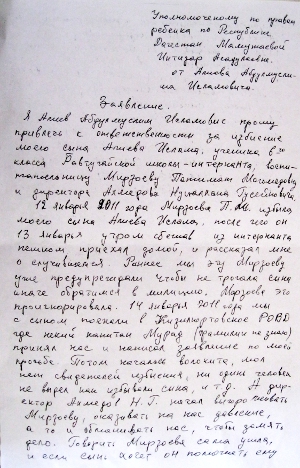 Уполномоченому по правам
ребенка по Республике
Дагестан Мамутаевой
Интизар Асадулаевне.
от Алиева Абдулмусли-
ма Исламовича.
Заявление.
Я Алиев Абдулмуслим Исламович прошу
привлечь к ответственности за избиение
моего сына Алиева Ислама, ученика 8го
класса школы-интерната, воспи-
тательницу Мирзоеву Патимат
и директора Ахмедова Гусейновича.
12 января 2011 года Мирзоева П. избила
моего сына Алиева Ислама, после чего он
13 января утром сбежав из интерната
пешком приехал домой, и рассказал мне
о случившейся. Раннее мы эту Мирзоеву
уже предупреждали чтобы не трогала сына
иначе обратимся в милицию. Мирзоева это
проигнорировала. 14 января 2011 году мы
с сыном поехали в Кизилюртовское РОВД
где некий капитан Мурад (фамилии не знаю)
принял нас и написал заявление по моей
просьбе. Потом началась волокита, мол
нет свидетелей избиения, ни один человек
не видел как избивали сына, и т.д. А дир-
ектор Ахмедов Н.Г. начал выгораживать
Мирзоеву, оказывать на нас давление,
а то и обманывать нас, чтобы замять
дело. Говорит Мирзоева сама ушла,
и если сын хочет он помогать ему